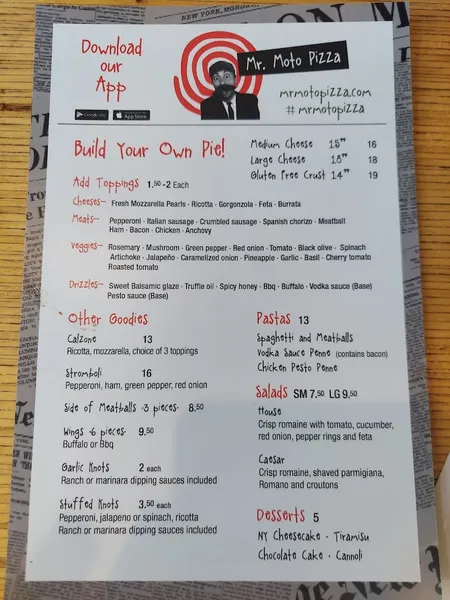 NEW YORK, MONDA
Download
our
App
Mr. Moto Pizza
mrmotopizza.com
# mrmotopizza
Google play
App Store
Build Your Own Pie!
Medium Cheese 15" 16
Large Cheese 18" 18
Gluten Free Crust 14" 19
Add Toppings 1.50-2 Each
Cheeses- Fresh Mozzarella Pearls · Ricotta · Gorgonzola · Feta · Burrata
Meats- Pepperoni · Italian sausage · Crumbled sausage · Spanish chorizo · Meatball
Ham · Bacon · Chicken · Anchovy
Veggies- Rosemary · Mushroom · Green pepper · Red onion · Tomato · Black olive · Spinach
Artichoke · Jalapeño · Caramelized onion · Pineapple · Garlic · Basil · Cherry tomato
Roasted tomato
Drizzles- Sweet Balsamic glaze · Truffle oil · Spicy honey · Bbq · Buffalo · Vodka sauce (Base)
Pesto sauce (Base)
Other Goodies
Calzone 13
Ricotta, mozzarella, choice of 3 toppings
Stromboli 16
Pepperoni, ham, green pepper, red onion
Side of Meatballs ·3 pieces· 8.50
Wings ·6 pieces· 9.50
Buffalo or Bbq
Garlic Knots 2 each
Ranch or marinara dipping sauces included
Stuffed Knots 3.50 each
Pepperoni, jalapeno or spinach, ricotta
Ranch or marinara dipping sauces included
Pastas 13
Spaghetti and Meatballs
Vodka Sauce Penne (contains bacon)
Chicken Pesto Penne
Salads SM 7.50 LG 9.50
House
Crisp romaine with tomato, cucumber,
red onion, pepper rings and feta
Caesar
Crisp romaine, shaved parmigiana,
Romano and croutons
Desserts 5
NY Cheesecake · Tiramisu
Chocolate Cake · Cannoli